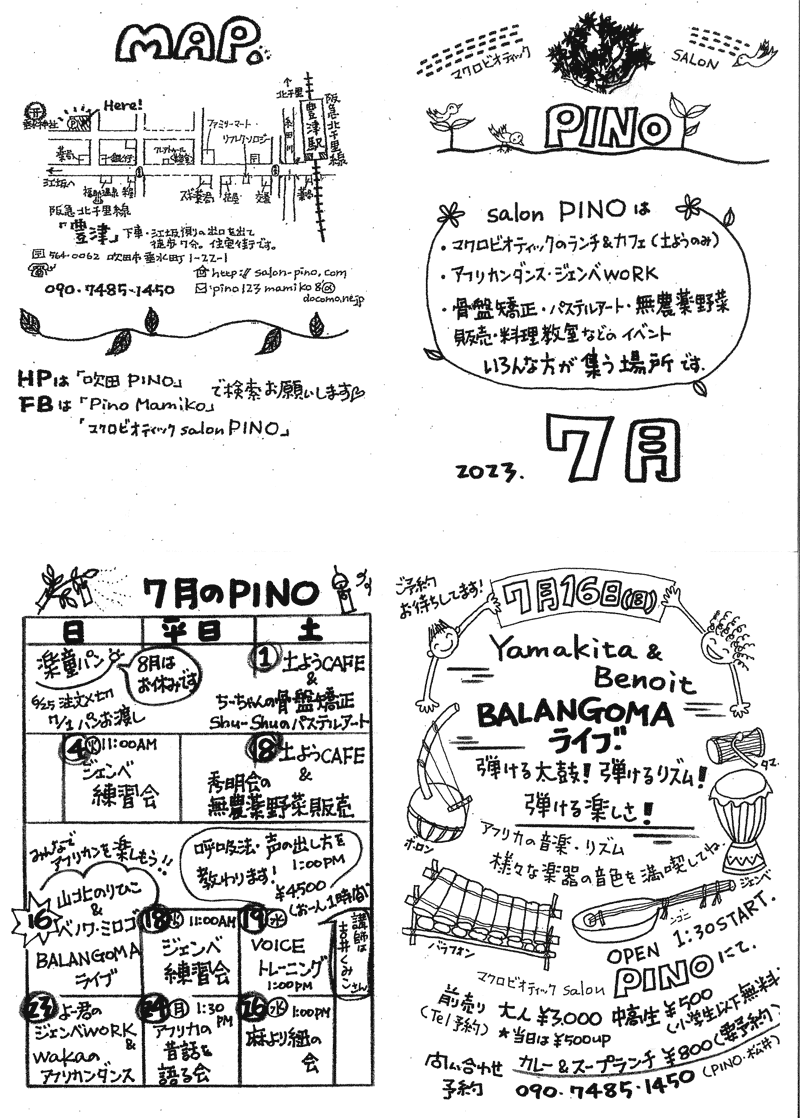 MAP.
Here!
垂水神社
ファミリーマート
リフレクソロジー
↑
北千里
豊津駅
阪急北千里線
薬局
江坂へ
スギ薬局
花屋
交番
阪急北千里線
「豊津」下車・江坂側の出口を出て
徒歩7分。住宅街です。
564-0062 吹田市垂水町1-22-1
http://salon-pino.com
090-7485-1450
pino123mamiko8@
docomo.ne.jp
HPは「吹田 PINO」
で検索お願いします
FBは「Pino Mamiko」
「マクロビオティック salon PINO」
マクロビオティック
SALON
PINO
salon PINOは
・マクロビオティックのランチ&カフェ(土ようのみ)
・アフリカンダンス・ジェンベWORK
・骨盤矯正・パステルアート・無農薬野菜
販売・料理教室などのイベント
いろんな方が集う場所です。
2023. 7月
7月のPINO
日 平日 土
楽童パン
8月は
お休みです
6/25 注文〆切
7/1 パンお渡し
1 土ようCAFE
&
ちーちゃんの骨盤矯正
Shu-Shuのパステルアート
4 火 11:00AM
ジェンベ
練習会
8 土ようCAFE
&
秀明会の
無農薬野菜販売
みんなで
アフリカンを楽しもう!!
呼吸法・声の出し方を
1:00PM
教わります!
¥4500
(お一人1時間)
16 山北のりひこ
&
ベノワ・ミロゴ
BALANGOMA
ライブ
18 火 11:00AM
ジェンベ
練習会
19 水
VOICE
トレーニング
1:00PM
講師は
吉井くみこさん
23 よー君の
ジェンベWORK
&
wakaの
アフリカンダンス
24 月 1:30
PM
アフリカの
昔話を
語る会
26 水 1:00PM
麻より紐の
会
ご予約
お待ちしてます!
7月16日(日)
Yamakita &
Benoit
BALANGOMA
ライブ
弾ける太鼓! 弾けるリズム!
弾ける楽しさ!
タマ
ボロン
アフリカの音楽・リズム
様々な楽器の音色を満喫してね。
ジェンベ
ンゴニ
バラフォン
OPEN 1:30START.
マクロビオティック salon PINOにて.
前売り 大人 ¥3,000 中高生 ¥500
(Tel予約) *当日は¥500up (小学生以下無料)
カレー&スープランチ ¥800(要予約)
問い合わせ
予約 090-7485-1450 (PINO・松井)